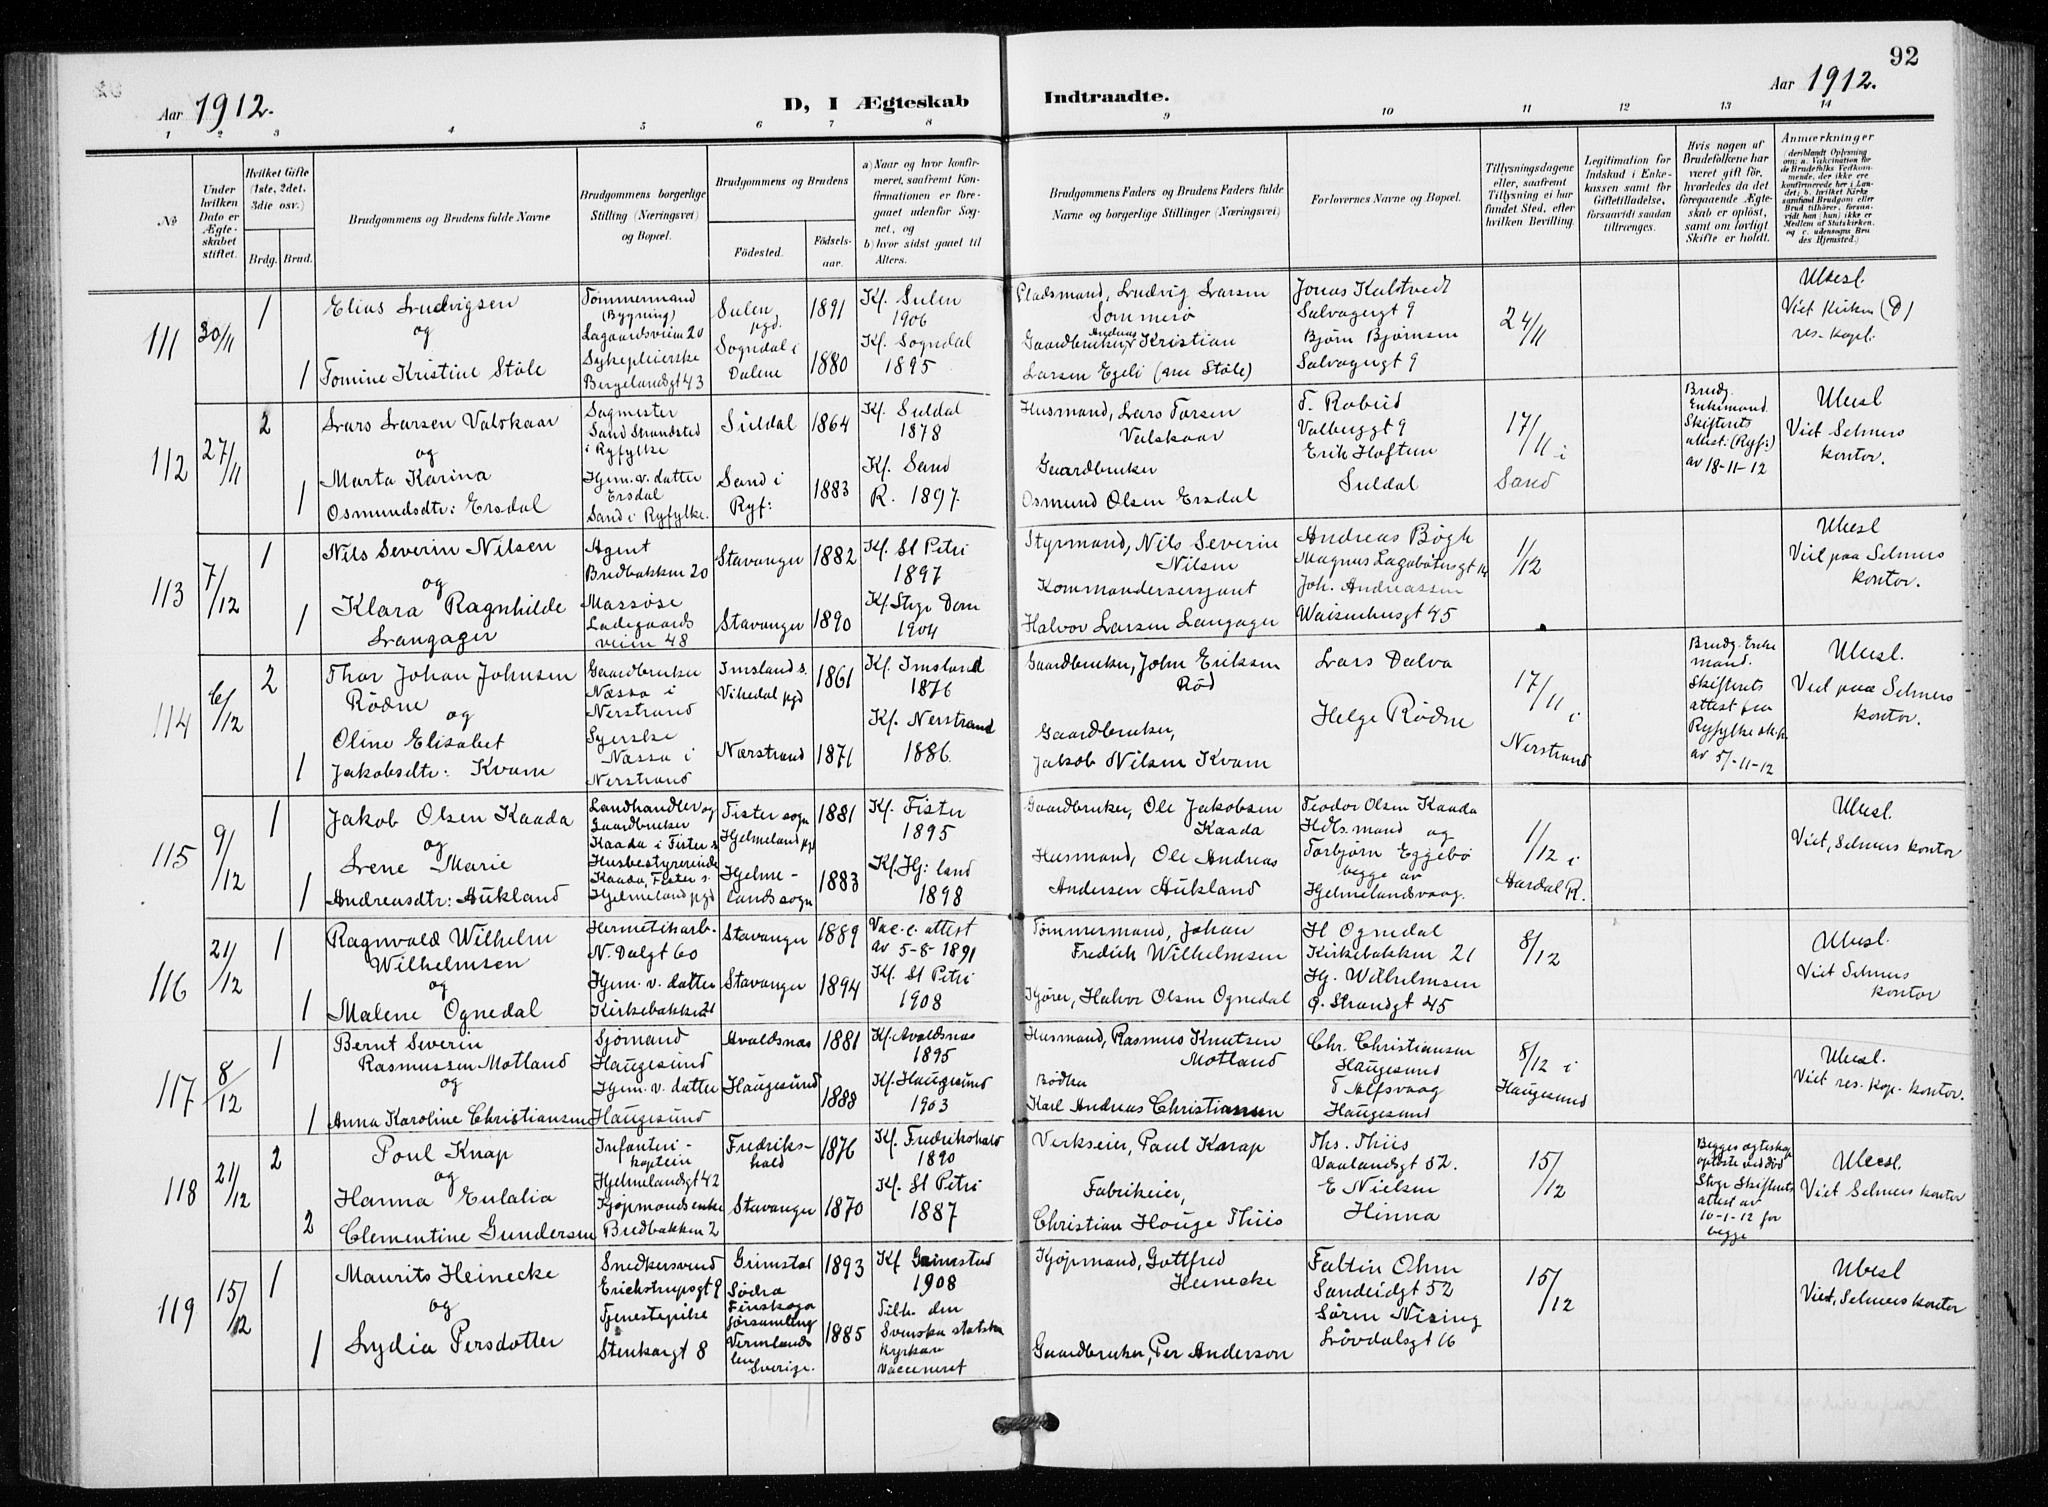 92
Aar 1912.
D, I Ægteskab Indtraadte.
Aar 1912.
1 2 3 4 5 6 7 8 9 10 11 12 13 14
No
Under hvilken Dato er Ægteskabet stiftet.
Hvilket Gifte (1ste, 2det, 3die osv.)
Brdg. Brud.
Brudgommens og Brudens fulde Navne
Brudgommens borgerlige Stilling (Næringsvei) og Bopæl.
Brudgommens og Brudens
Fødested. Fødselsaar.
a) Naar og hvor konfirmeret, saafremt Konfirmationen er foregaaet udenfor Sognet, og
b) hvor sidst gaaet til Alters.
Brudgommens Faders og Brudens Faders fulde Navne og borgerlige Stillinger (Næringsvei)
Forlovernes Navne og Bopæl.
Tillysningsdagene eller, saafremt Tillysning ei har fundet Sted, efter hvilken Bevilling.
Legitimation for Indskud i Enkekassen samt for Giftetilladelse, forsaavidt saadan tiltrænges.
Hvis nogen af Brudefolkene har været gift før, hvorledes da det foregaaende Ægteskab er opløst, samt om lovligt Skifte er holdt.
Anmerkninger
111
30/11
1
Elias Ludvigsen
og
1 Tomine Kristine Støle
Tømmermand
(Bygning)
Lagaardsveien 20
Sykepleierske
Bergelandsgt 43
Sulen pgd. 1891
Sogndal i Dalene 1880
Kf. Sulen 1906
Kf. Sogndal 1895
Pladsmand, Ludvig Larsen
Sommerø
Gaardbruker, Andreas Kristian
Larsen Egeli (nu Støle)
Jonas Kalstvedt
Salvagergt 9
Bjørn Bjørnsen
Salvagergt 9
24/11
Ubesl.
Viet Kirken (D)
res. kapl.
112
27/11
2
Lars Larsen Valskaar
og
Marta Karina
1 Osmundsdtr: Ersdal
Sagmester
Sand Strandsted
i Ryfylke
Hjm. v. datter
Ersdal
Sand i Ryfylke.
Suldal 1864
Sand i Ryf: 1883
Kf. Suldal 1878
Kf. Sand R. 1897.
Husmand, Lars Torsen
Valskaar
Gaardbruker
Osmund Olsen Ersdal
Valberggt 9
Erik Hoftun
Suldal
17/11 i
Sand
Brudg. Enkemand.
Skifterets attest: (Ryf:)
av 18-11-12
Ubesl
Viet Selmers
kontor.
113
7/12
1
Nils Severin Nilsen
og
Klara Ragnhilde
1 Langager
Agent
Bredbakken 20
Massøse
Ladegaards
veien 48
Stavanger 1882
Stavanger 1890
Kf. St Petri 1897
Kf. Stgr Dom 1904
Styrmand, Nils Severin
Nilsen
Kommandersersjant
Halvor Larsen Langager
Andreas Bøgh
Magnus Lagabøtersgt 14
Joh. Andreassen
Waisenhusgt 45
1/12
Ubesl
Viet paa Selmers
kontor.
114
6/12
2
Thor Johan Johnsen
Rødne
og
Oline Elisabet
1 Jakobsdtr: Kvam
Gaardbruker
Næssa i
Nerstrand
Syerske
Næssa i
Nerstrand
Imsland s.
Vikedal pgd 1861
Nærstrand 1871
Kf. Imsland 1876
Kf. Nerstrand 1886.
Gaardbruker, John Eriksen
Rød
Gaardbruker,
Jakob Nilsen Kvam
Lars Dalva
Helge Rødne
17/11 i
Nerstrand
Brudg. Enkemand.
Skifterets
attest fra
Ryfylke skifr
av 5/-11-12
Ubesl.
Viet paa Selmers
kontor.
115
9/12
1
Jakob Olsen Kaada
og
Lene Marie
1 Andreasdtr: Aukland
Landhandler og
Gaardbruker
Kaada i Fister s
Husbestyrerinde
Kaada, Fister s.
Hjelmeland pgd
Fister sogn
Hjelmeland pgd 1881
Hjelmelands sogn 1883
Kf. Fister 1895
Kf. Hj: land 1898
Gaardbruker, Ole Jakobsen
Kaada
Husmand, Ole Andreas
Andersen Aukland
Teodor Olsen Kaada
Hdlsmand og
Torbjørn Eggebø
begge av
Hjelmelandsvaag.
1/12 i
Aardal R.
Ubesl.
Viet, Selmers kontor
116
21/12
1
Ragnvald Wilhelm
Wilhelmsen
og
1 Malene Ognedal
Hermetikarb.
N. Dalgt 60
Hjm. v. datter
Kirkebakken 21
Stavanger 1889
Stavanger 1894
Vac.c. attest
av 5-8-1891
Kf. St Petri 1908
Tømmermand, Johan
Fredrik Wilhelmsen
Kjører, Halvor Olsen Ognedal
H Ognedal
Kirkebakken 21
Hj. Wilhelmsen
Ø. Strandgt 45
8/12
Ubesl.
Viet Selmers
kontor
117
8/12
1
Bernt Severin
Rasmussen Motland
og
1 Anna Karoline Christiansen
Sjømand
Haugesund
Hjm. v. datter
Haugesund
Avaldsnæs 1881
Haugesund 1888
Kf. Avaldsnæs 1895
Kf. Haugesund 1903
Husmand, Rasmus Knutsen
Motland
Bødker
Karl Andreas Christiansen
Chr. Christiansen
Haugesund
T. Alfsvaag
Haugesund
8/12 i
Haugesund
Ubesl.
Viet res. kap. kontor.
118
21/12
2
Poul Knap
og
Hanna Eulalia
2 Clementine Gundersen
Infanteri-
kaptein
Hjelmelandsgt 42
Kjøpmandsenke
Bredbakken 2
Fredrikshald 1876
Stavanger 1870
Kf. Fredrikshald 1890
Kf. St Petri 1887
Verkseier, Paul Knap
Fabrikeier,
Christian Houge Thiis
Ths. Thiis
Vaalandsgt 52.
E Nielsen
Hinna
15/12
Begges egteskap
opløste ved død
Stgr Skifterets
attest av
10-1-12 for
begge
Ubesl.
Viet Selmers kontor
119
15/12
1
Maurits Heinecke
og
1 Lydia Persdotter
Snedkersvend
Erichstrupsgt 9
Tjenestepike
Stenkargt 8
Grimstad 1893
Södra
Finskoga
församling
Vermlands
len
Sverige. 1885
Kf Grimstad 1908
Tilh. den
Svenska statskyrkan
Vaccineret
Kjøpmand, Gottfred
Heinecke
Gaardbruker, Per Anderson
Faltin Ohm
Sandeidgt 52
Søren Nising
Løvdalsgt 16
15/12
Ubesl
Viet, Selmers kontor